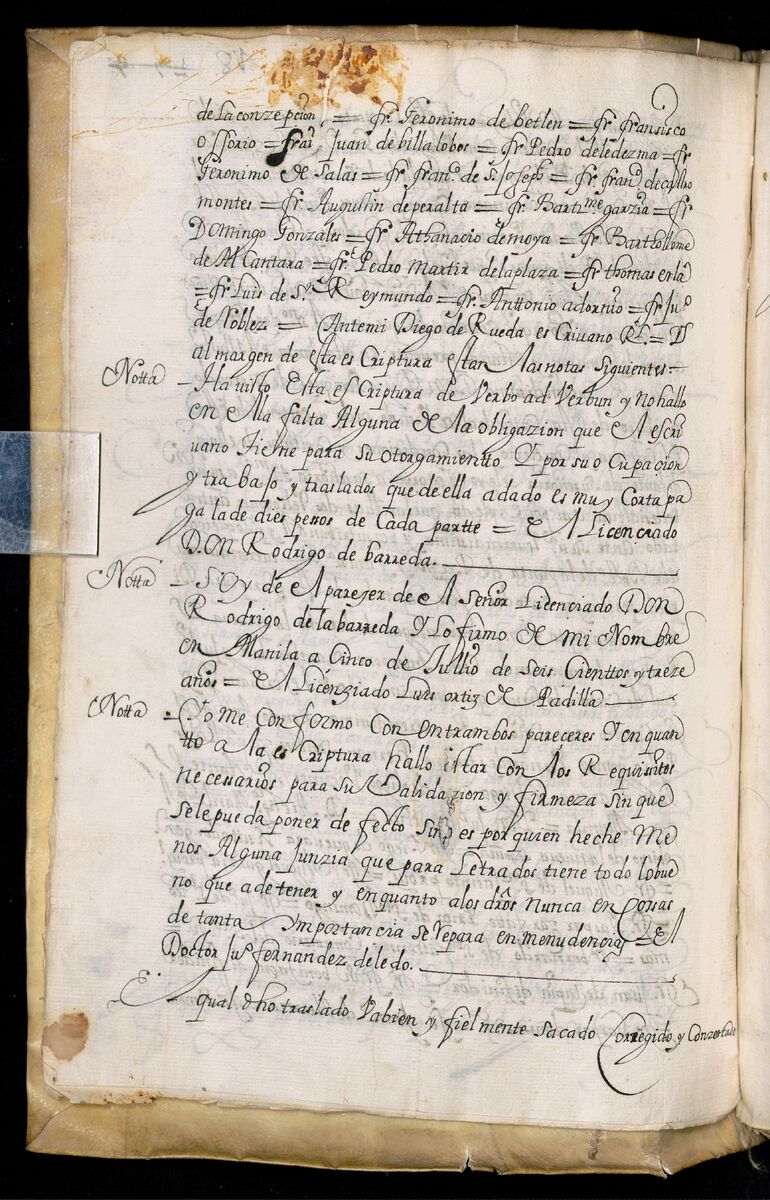 de la conzepcion = fr. Geronimo de betlen = fr. fransisco
ossorio = frai Juan de billalobos = fr Pedro deledezma = fr
Geronimo de Salas = fr. franco. de S. Joseph = fr. franco. de castro
montes = fr. Augustin de peralta = fr. Bartme. garzia = fr
Domingo Gonzales = fr Athanacio demoya = fr. Bartholome
de Alcantara = fr. Pedro Martir delaplaza = fr thomas
= fr Luis de Sn. Reymundo = fr. Anttonio adornio = fr Juo.
de Noblez = Antemi Diego de Rueda es Crivano Rl. = D
al margen de esta es Criptura estan las notas siguientes =
Notta _ Ha visto Esta es Criptura de Verbo ad Verbun y no hallo
en ella falta Alguna de la obligazion que el escri
uano Tiene para su otorgamientto Y por su o Cupacion
y tra bajo y traslados que de ella a dado es muy Corta pa
ga la de dies pessos de Cada partte = El Licenciado
DON Rodrigo de barreda.
Notta _ Soy de el parezer de el Señor Licenciado DON
Rodrigo de la barreda Y lo firmo de mi Nombre
en Manila a Cinco de Jullio de seis Cienttos y treze
años = El Licenziado Luis ortiz de Padilla
Notta = Yo me Con formo Con entrambos pareceres Y en quan
tto a la es Criptura hallo istar Con los Requisitos
necessarios para su Validazion y firmeza sin que
sele pueda poner de fecto sino es por quien heche Me
nos Alguna Junzia que para Letrados tiene todo lo bue
no que a de tener y en quanto a los dros Nunca en Cosas
de tanta Importancia se repara en menudencias = El
Doctor Juo. fernandez de ledo.
El qual dho traslado Va bien y fielmente sacado Corregido y Conzertado